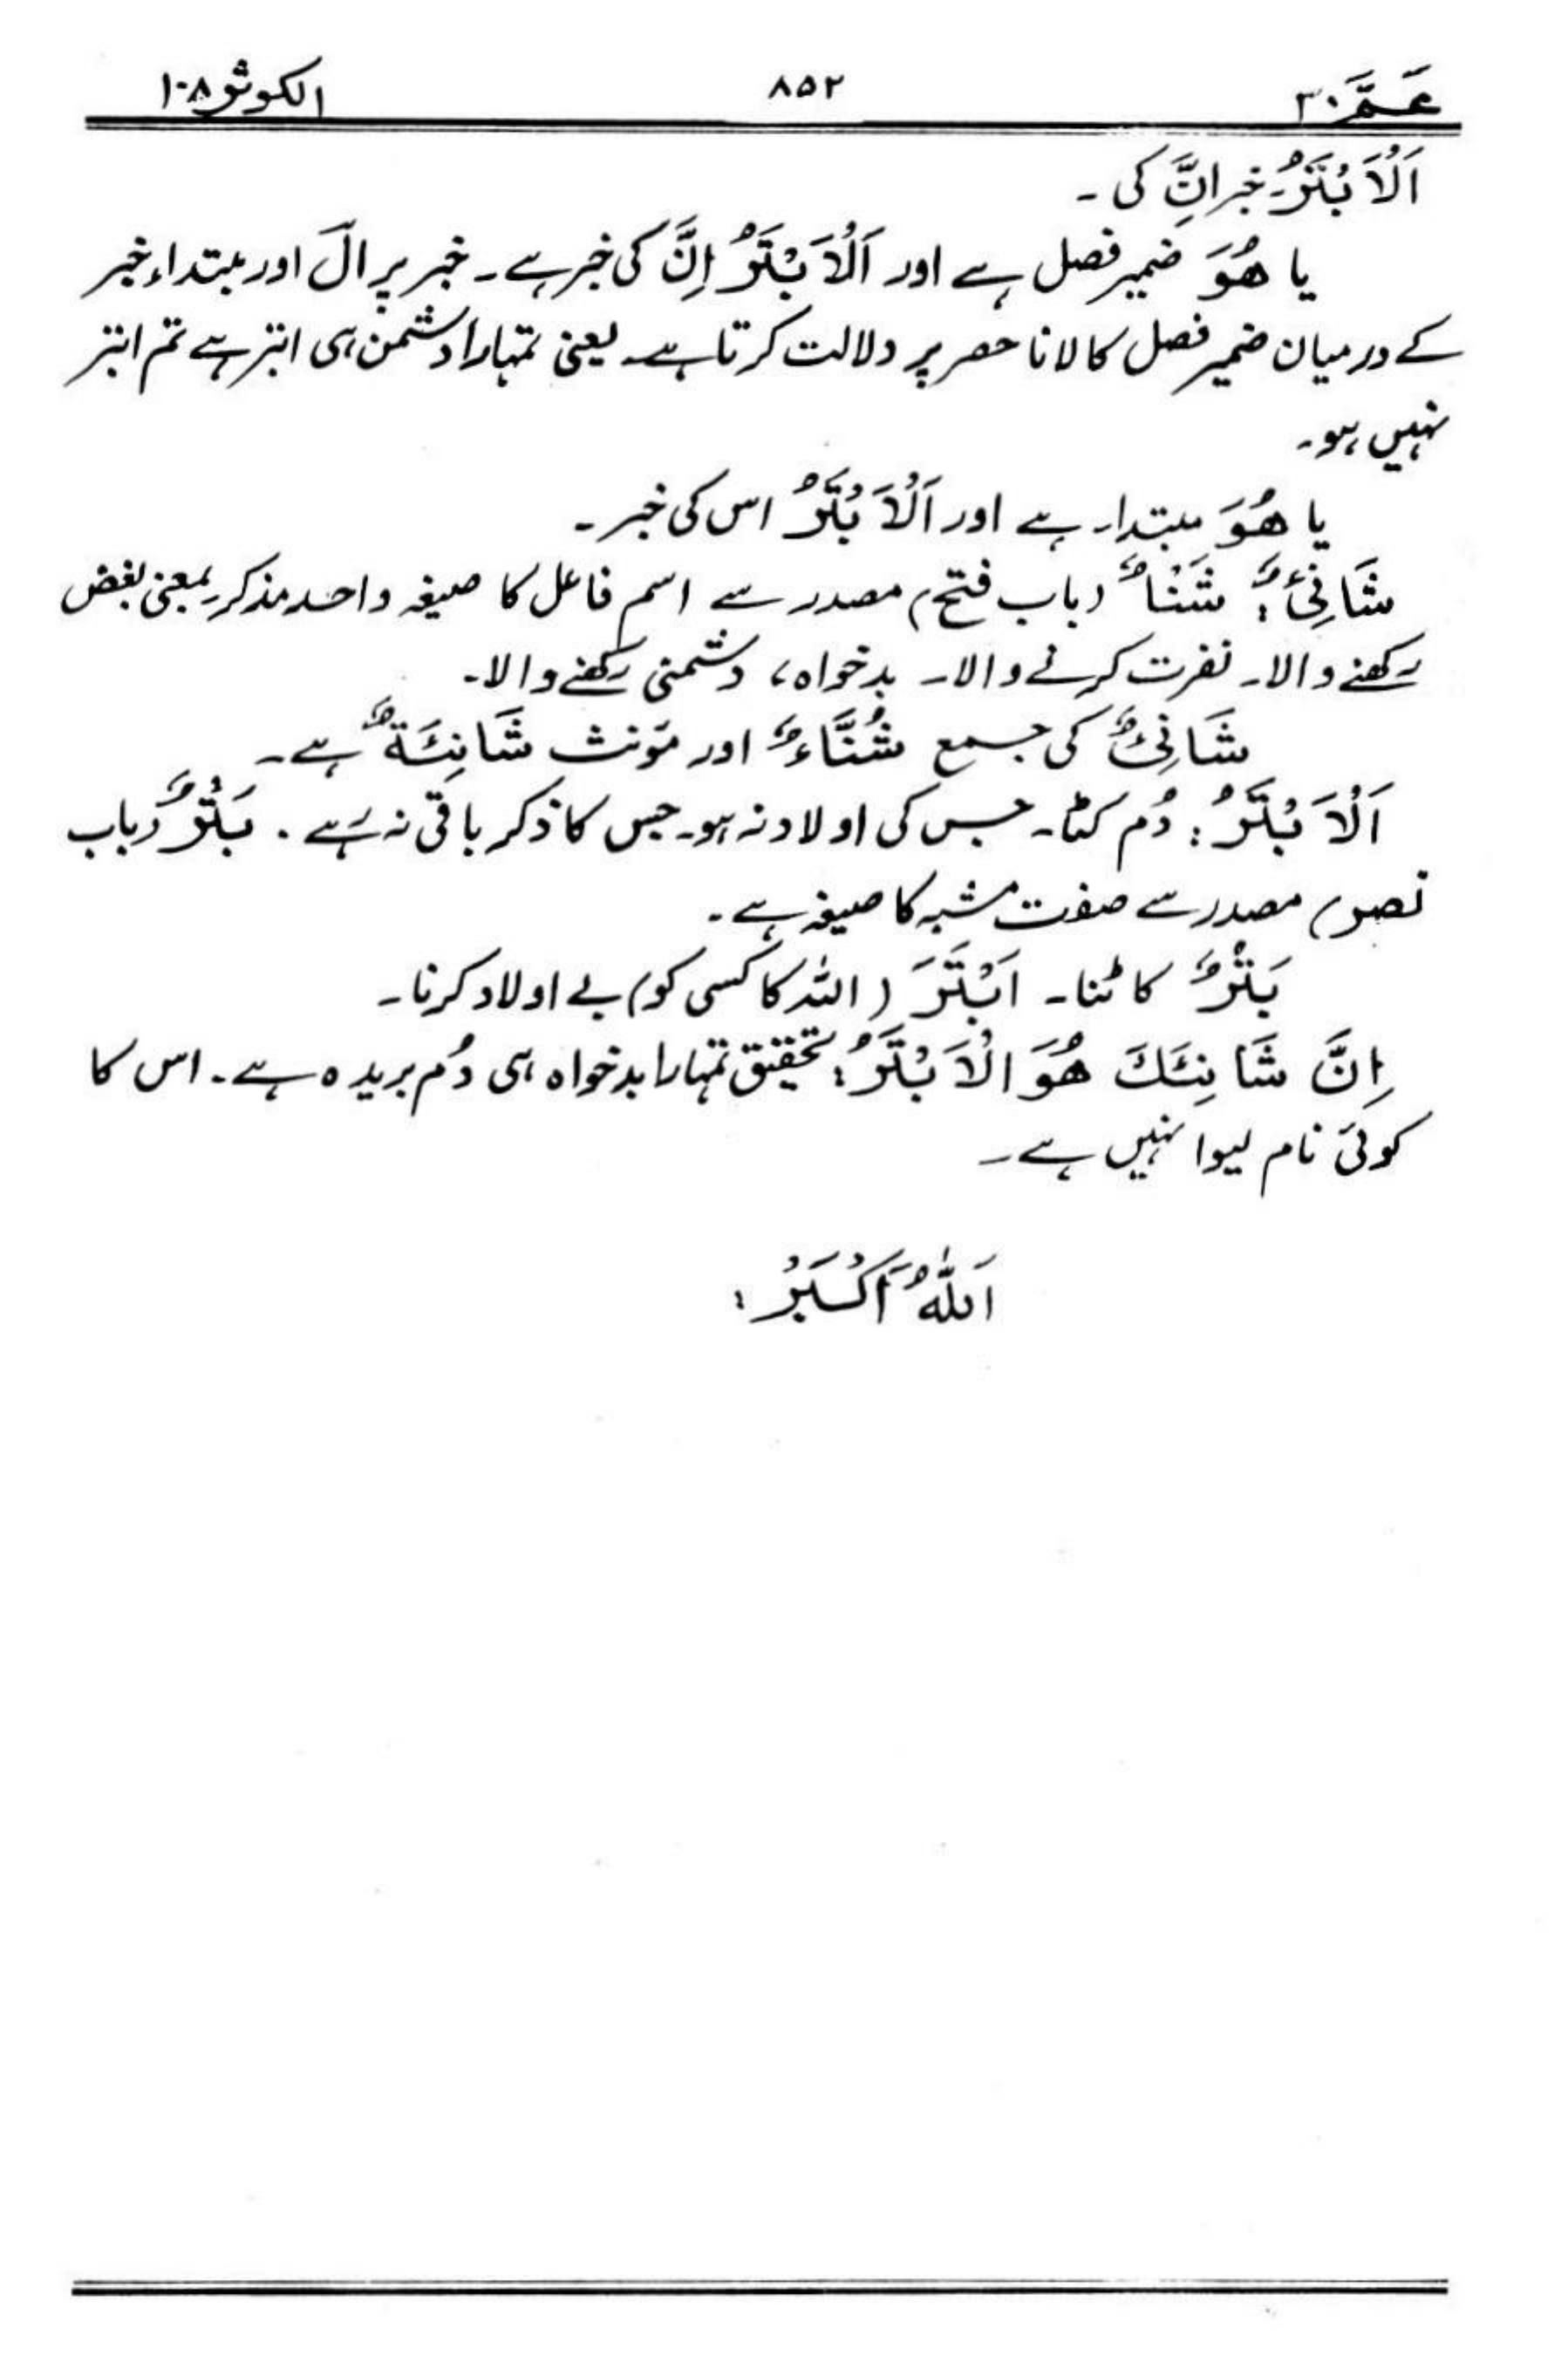 عَمَّ ۳۰ ۸۵۲ الکوثر ۱۰۸
اَلْاَبْتَرُ۔ خبر انَّ کی ۔
یا هُوَ ضمیر فصل ہے اور اَلْاَبْتَرُ اِنَّ کی خبر ہے ۔ خبر پر الَ اور مبتداء خبر
کے درمیان ضمیر فصل کا لانا حصر پر دلالت کرتا ہے۔ یعنی تمہارا دشمن ہی ابتر ہے تم ابتر
نہیں ہو۔
یا هُوَ مبتدا۔ ہے اور اَلْاَبْتَرُ اس کی خبر ۔
شَانِئٌ: شَنْأٌ (باب فتح) مصدر سے اسم فاعل کا صیغہ واحد مذکر بمعنی بغض
رکھنے والا۔ نفرت کرنے والا۔ بدخواہ، دشمنی رکھنے والا۔
شَانِئٌ کی جمع شُنَّاءٌ اور مؤنث شَانِئَةٌ ہے۔
اَلْاَبْتَرُ: دُم کٹا۔ جس کی اولاد نہ ہو۔ جس کا ذکر باقی نہ رہے . بَتْرٌ (باب
نصر) مصدر سے صفت مشبہ کا صیغہ ہے ۔
بَتْرٌ کاٹنا۔ اَبْتَرَ (اللہ کا کسی کو) بے اولاد کرنا ۔
اِنَّ شَانِئَكَ هُوَ الْاَبْتَرُ: تحقیق تمہارا بدخواہ ہی دُم بریدہ ہے ۔ اس کا
کوئی نام لیوا نہیں ہے ۔
اَللّٰهُ اَكْبَرُ :